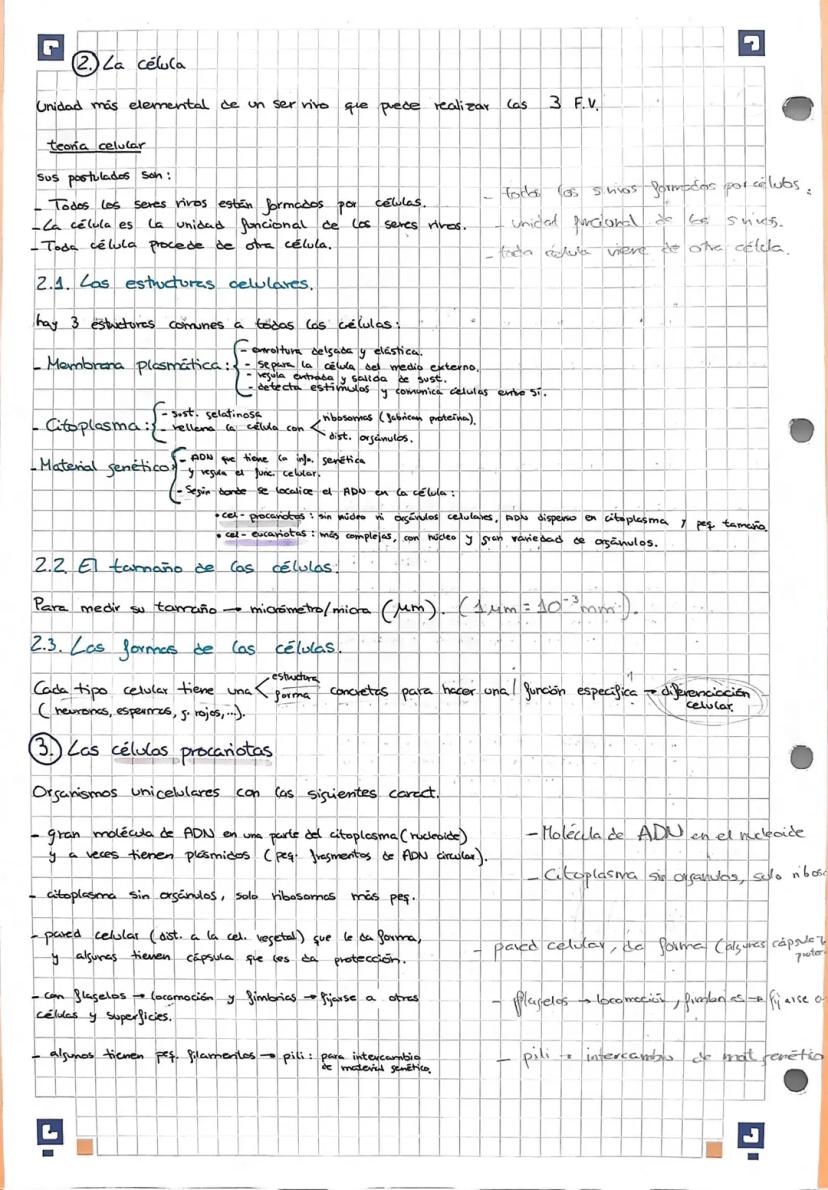 2. La célula
Unidad más elemental de un ser vivo que puede realizar las 3 F.V.
teoría celular
Sus postulados son:
- Todos los seres vivos están formados por células.
- La célula es la unidad funcional de los seres vivos.
- Toda célula procede de otra célula.
- todos los s.vivos formados por células.
- unidad funcional de los s.vivos.
- toda célula viene de otra célula.
2.1. Las estructuras celulares.
hay 3 estructuras comunes a todas las células:
- Membrana plasmática:
- envoltura delgada y elástica.
- separa la célula del medio externo.
- regula entrada y salida de sust.
- detecta estímulos y comunica células entre sí.
- Citoplasma:
- sust. gelatinosa
- rellena la célula con
ribosomas (fabrican proteína).
dist. orgánulos.
- Material genético
- ADN que tiene la info. genética
y regula el func. celular.
- Según donde se localice el ADN en la célula:
• cel- procariotas: sin núcleo ni orgánulos celulares, ADN disperso en citoplasma y peq. tamaño.
• cel- eucariotas: más complejas, con núcleo y gran variedad de orgánulos.
2.2. El tamaño de las células.
Para medir su tamaño → micrómetro/micra (μm). (1 μm = 10⁻³ mm).
2.3. Las formas de las células.
Cada tipo celular tiene una
estructura
forma
concretas para hacer una función específica → diferenciación
celular.
(neuronas, espermas, g. rojos,...).
3. Las células procariotas
Organismos unicelulares con las siguientes caract.
- gran molécula de ADN en una parte del citoplasma (nucleoide)
y a veces tienen plásmidos (peq. fragmentos de ADN circular).
- Molécula de ADN en el nucleoide
- citoplasma sin orgánulos, solo ribosomas más peq.
- Citoplasma sin orgánulos, solo ribos
- pared celular (dist. a la cel. vegetal) que le da forma,
y algunas tienen cápsula que les da protección.
- pared celular, da forma (algunas cápsula
- con flagelos → locomoción y fimbrias → fijarse a otras
células y superficies.
- flagelos → locomoción, fimbrias → fijarse a
- algunos tienen peq. filamentos → pili: para intercambio
de material genético.
- pili → intercambio de mat genético